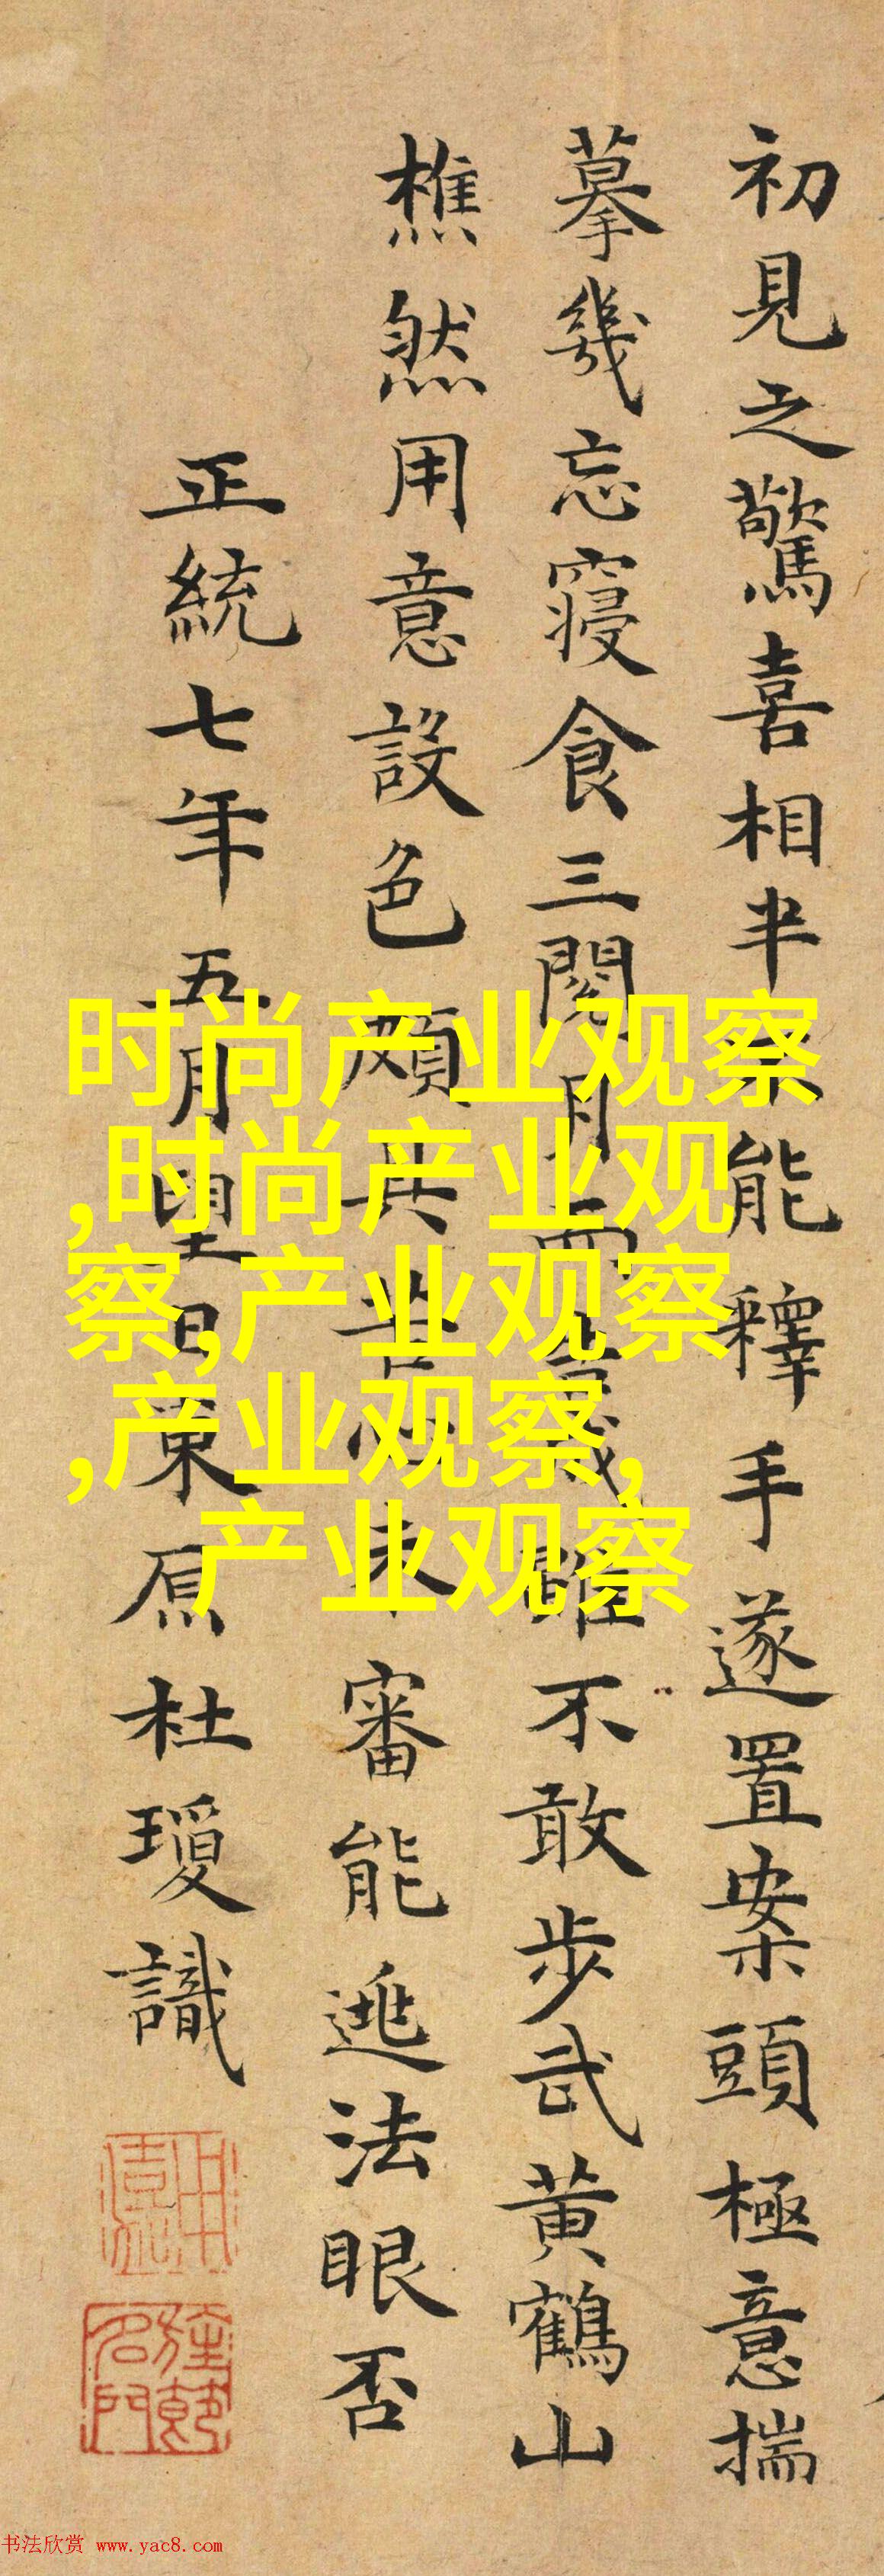 初見之驚喜相半不能釋手遂置案頭極意揣
摹幾忘寢食三閱月而成雖不敢步武黃鶴山
樵然用意設色頗共苦心未審能逃法眼否
正統七年五月望日東原杜瓊識
时尚产业观察
,时尚产业观
察,产业观察
,产业观察,
产业观察
书法欣赏 www.yac8.com